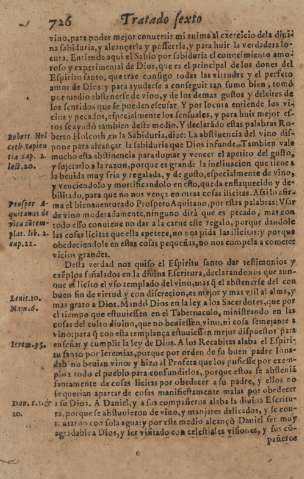 726 Tratado sexto
vino, para poder mejor conuertir mi anima al exercicio de la diui
na sabiduria, y alcançarla y posseerla, y para huir la verdadera lo-
cura. Entiendo aqui el Sabio por sabiduria el conocimiento amo-
roso y experimental de Dios, que es el principal de los dones del
Espiritu santo, que trae consigo todas las virtudes y el perfeto
amor de Dios: y para ayudarse a conseguir tan sumo bien, tomò
por medio abstenerse de vino, y de los demas gustos y deleites de
los sentidos que se pueden escusar. Y por locura entiende los vi-
cios y pecados, especialmente los sensuales, y para huir mejor es-
tos se ayudò tambien deste medio. Y declarando estas palabras Ro-
berto Holcoth en la Sabiduria, dize: La abstinencia del vino dis-
pone para alcançar la sabiduria que Dios infunde. Tambien vale
mucho esta abstinencia para domar y vencer el apetito del gusto,
y sujetarlo a la razon, porque es grande la inclinacion que tiene a
la beuida muy fria y regalada, y de gusto, especialmente de vino,
y venciendolo y mortificandolo en esto, queda enflaquecido y de-
bilitado, para que no nos vença en otras cosas ilicitas. Assi lo afir-
ma el bienauenturado Prospero Aquitano, por estas palabras: Vsar
de vino moderadamente, ninguno dirà que es pecado, mas con
todo esso conuiene no dar a la carne este regalo, porque dandole
las cosas licitas que ella apetece, no nos pida las ilicitas: y porque
obedeciendole en estas cosas pequeñas, no nos compela a cometer
vicios grandes.
Desta verdad nos quiso el Espiritu santo dar testimonios y
exẽplos señalados en la diuina Escritura, declarandonos que aun-
que es licito el vso templado del vino, mas q̃ el abstenerse del con
buen fin de virtud y con discrecion, es mejor y mas vtil al alma, y
mas grato a Dios. Mandò Dios en la ley a los Sacerdotes, que por
el tiempo que estuuiessen en el Tabernaculo, ministrando en las
cosas del culto diuino, que no beuiessen vino, ni cosa semejante a
vino: para q̃ con esta templança estuuiessen mejor dispuestos para
enseñar y cumplir la ley de Dios. A los Recabitas alaba el Espiri-
tu santo por Ieremias, porque por orden de su buen padre Iona-
dab no beuian vino: y hizo al Profeta que los pusiesse por exem-
plos a todo el pueblo para confundirlos, porque estos se abstenia
santamente de cosas licitas por obedecer a su padre, y ellos no
se querian apartar de cosas manifiestamente malas por obedecer
a su Dios. A Daniel, y a sus compañeros alaba la diuina Escritu-
ra, porque se abstuuieron de vino, y manjares delicados, y se con-
tentaron con sola agua: y por este medio alcançò Daniel ser muy
agradable a Dios, y ser visitado con celestiales visiones, y sus cõ-
pañeros
Robert. Hol
coth. sapien
tiæ cap. 2.
lect. 20.
Prosper A-
quitanus de
vita contem-
plat. lib. 2.
cap. 22.
Leuit. 10.
Num. 6.
Ierem. 35.
Dan. 1. &
10.